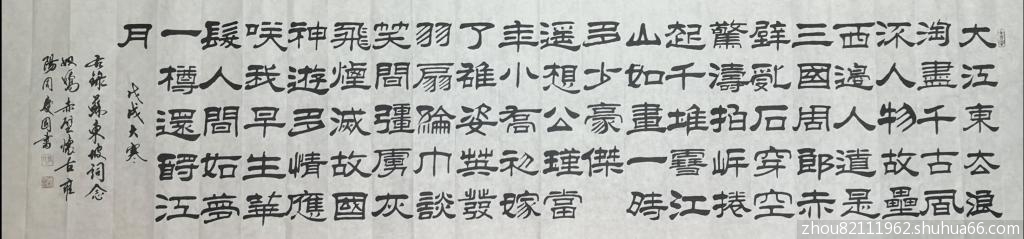 大江東去浪
淘盡千古風
流人物故壘
西邊人道是
三國周郎赤
壁亂石穿空
驚濤拍岸捲
起千堆雪江
山如畫一時
多少豪傑
遥想公瑾當
年小喬初嫁
了雄姿英發
羽扇綸巾談
笑間彊虜灰
飛煙滅故國
神遊多情應
咲我早生華
髮人間如夢
一樽還酹江
月
戊戌大寒
右錄蘇東坡詞念
奴嬌赤壁懷古雍
陽周國書
zhou82111962.shuhua66.com